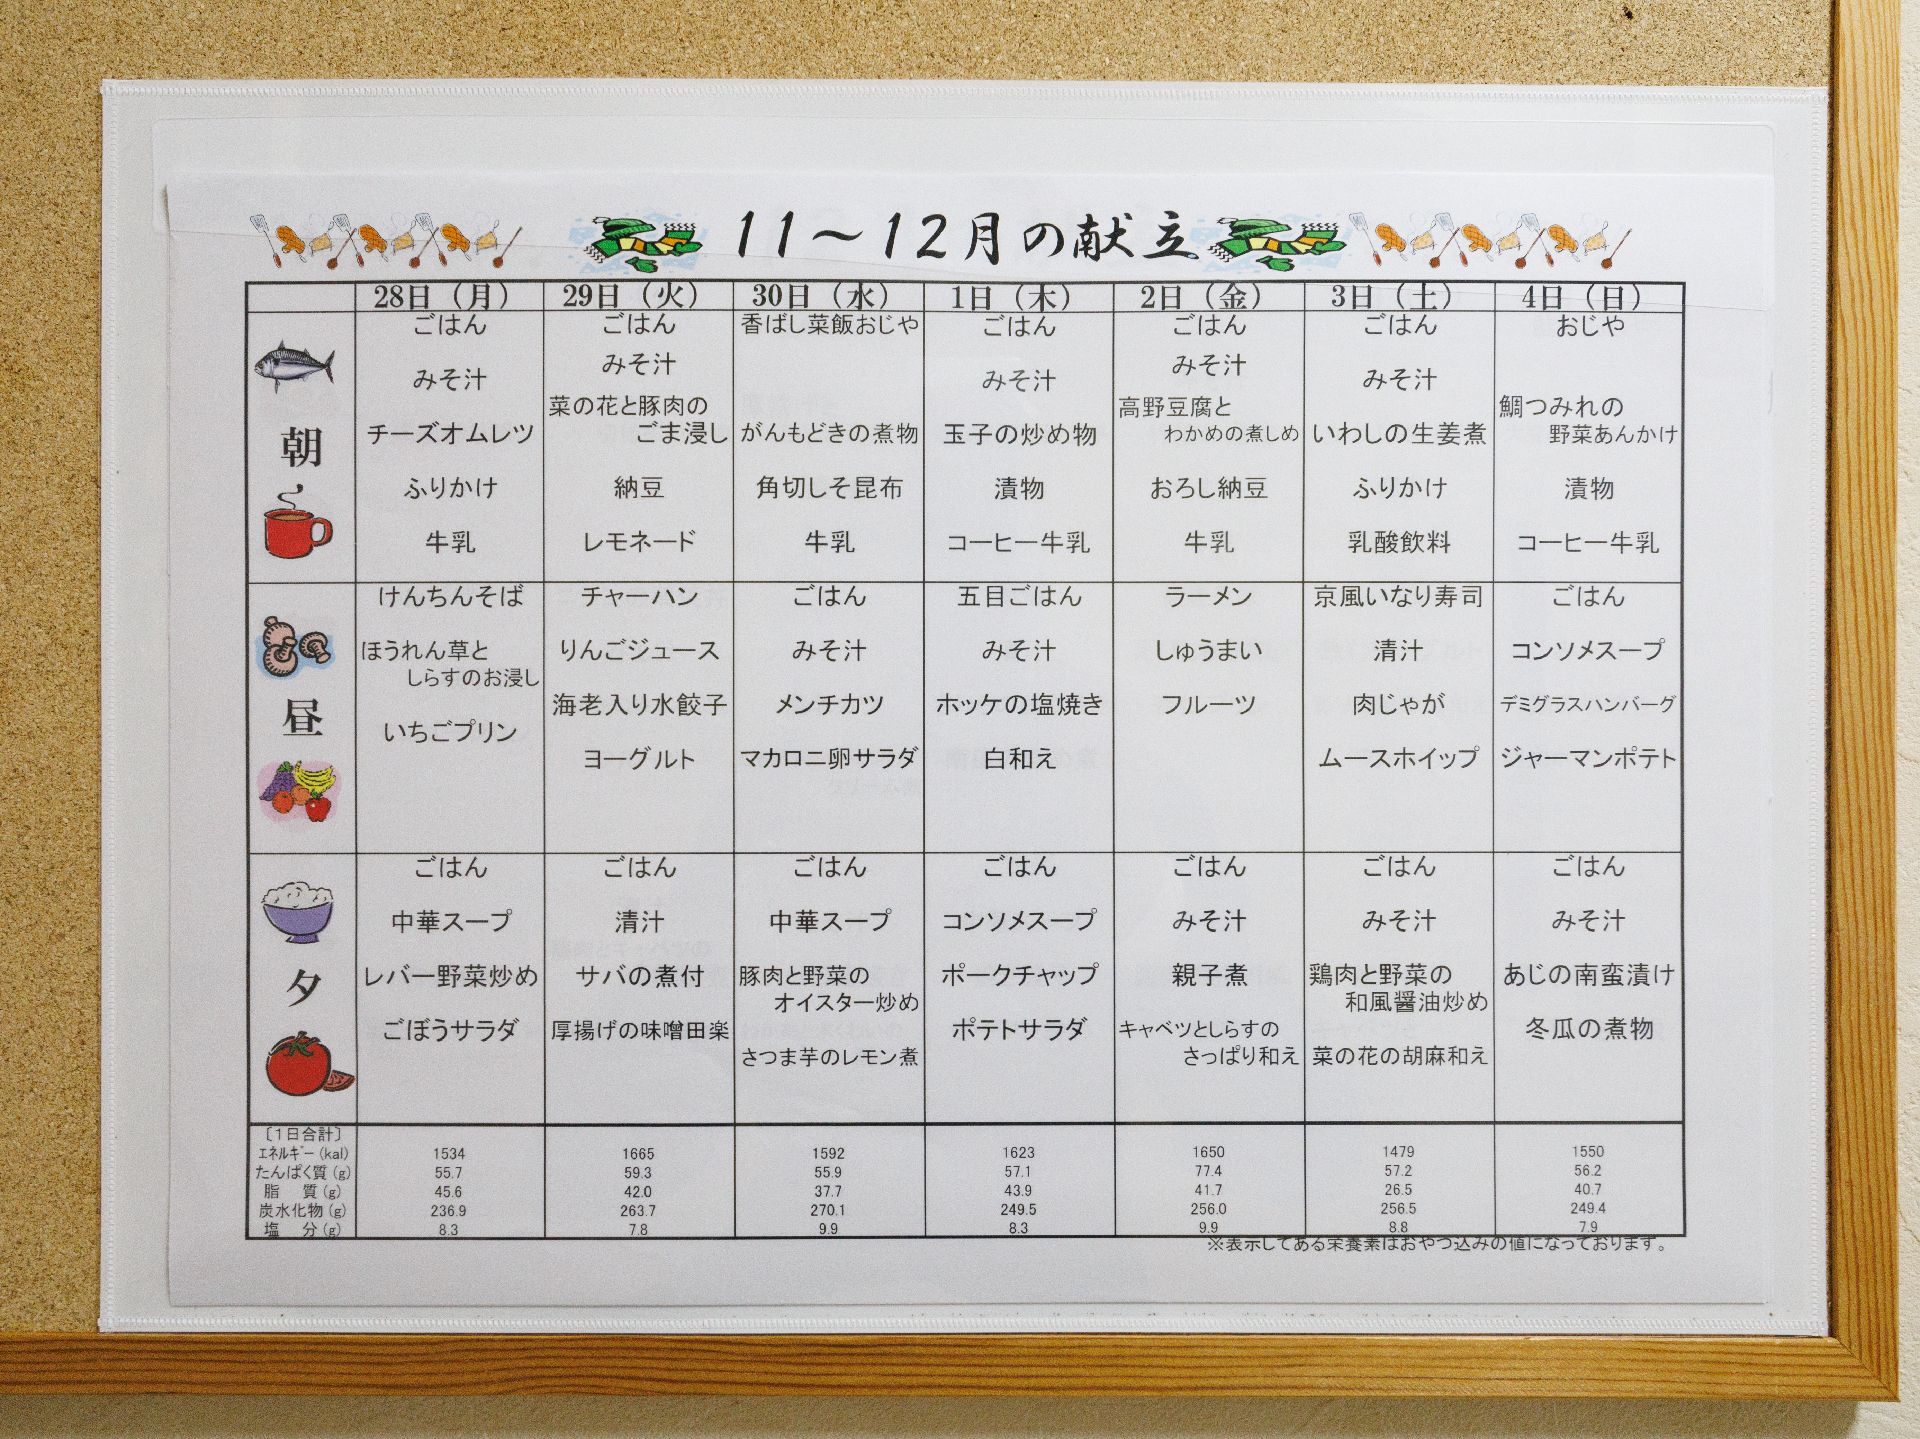 11～12月の献立
28日（月） 29日（火） 30日（水） 1日（木） 2日（金） 3日（土） 4日（日）
朝
ごはん
みそ汁
チーズオムレツ
ふりかけ
牛乳
ごはん
みそ汁
菜の花と豚肉の
ごま浸し
納豆
レモネード
香ばし菜飯おじや
がんもどきの煮物
角切しそ昆布
牛乳
ごはん
みそ汁
玉子の炒め物
漬物
コーヒー牛乳
ごはん
みそ汁
高野豆腐と
わかめの煮しめ
おろし納豆
牛乳
ごはん
みそ汁
いわしの生姜煮
ふりかけ
乳酸飲料
おじや
鯛つみれの
野菜あんかけ
漬物
コーヒー牛乳
昼
けんちんそば
ほうれん草と
しらすのお浸し
いちごプリン
チャーハン
りんごジュース
海老入り水餃子
ヨーグルト
ごはん
みそ汁
メンチカツ
マカロニ卵サラダ
五目ごはん
みそ汁
ホッケの塩焼き
白和え
ラーメン
しゅうまい
フルーツ
京風いなり寿司
清汁
肉じゃが
ムースホイップ
ごはん
コンソメスープ
デミグラスハンバーグ
ジャーマンポテト
夕
ごはん
中華スープ
レバー野菜炒め
ごぼうサラダ
ごはん
清汁
サバの煮付
厚揚げの味噌田楽
ごはん
中華スープ
豚肉と野菜の
オイスター炒め
さつま芋のレモン煮
ごはん
コンソメスープ
ポークチャップ
ポテトサラダ
ごはん
みそ汁
親子煮
キャベツとしらすの
さっぱり和え
ごはん
みそ汁
鶏肉と野菜の
和風醤油炒め
菜の花の胡麻和え
ごはん
みそ汁
あじの南蛮漬け
冬瓜の煮物
〔1日合計〕
ｴﾈﾙｷﾞｰ(kal) 1534 1665 1592 1623 1650 1479 1550
たんぱく質(g) 55.7 59.3 55.9 57.1 77.4 57.2 56.2
脂　質(g) 45.6 42.0 37.7 43.9 41.7 26.5 40.7
炭水化物(g) 236.9 263.7 270.1 249.5 256.0 256.5 249.4
塩　分(g) 8.3 7.8 9.9 8.3 9.9 8.8 7.9
※表示してある栄養素はおやつ込みの値になっております。